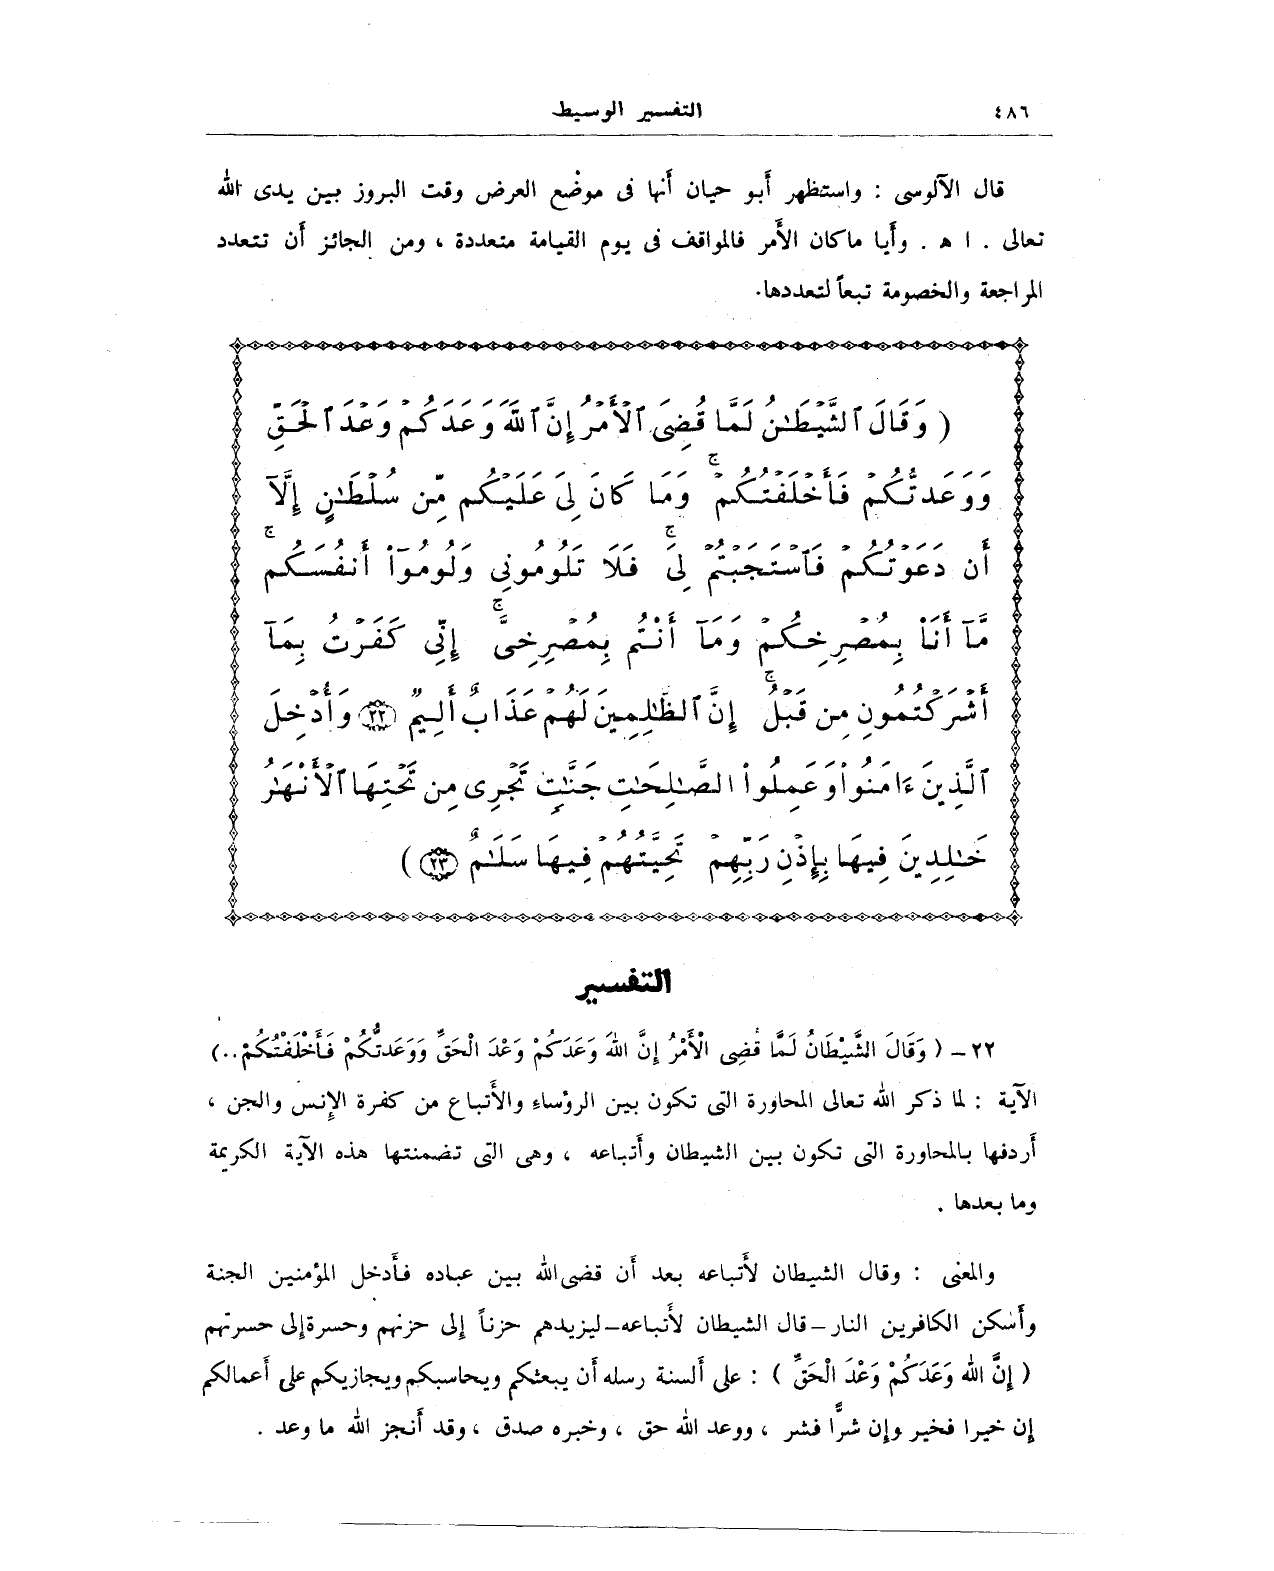 ٤٨٦
التفسير الوسيط
قال الآلوسى : واستظهر أبو حيان أنها فى موضع العرض وقت البروز بين يدى الله
تعالى . ا ه . وأيا ماكان الأمر فالمواقف فى يوم القيامة متعددة ، ومن الجائز أن تتعدد
المراجعة والخصومة تبعاً لتعددها.
( وَقَالَ ٱلشَّيْطَـٰنُ لَمَّا قُضِىَ ٱلْأَمْرُ إِنَّ ٱللَّهَ وَعَدَكُمْ وَعْدَ ٱلْحَقِّ
وَوَعَدتُّكُمْ فَأَخْلَفْتُكُمْ ۖ وَمَا كَانَ لِىَ عَلَيْكُم مِّن سُلْطَـٰنٍ إِلَّآ
أَن دَعَوْتُكُمْ فَٱسْتَجَبْتُمْ لِى ۖ فَلَا تَلُومُونِى وَلُومُوٓا۟ أَنفُسَكُم ۖ
مَّآ أَنَا۠ بِمُصْرِخِكُمْ وَمَآ أَنتُم بِمُصْرِخِىَّ ۖ إِنِّى كَفَرْتُ بِمَآ
أَشْرَكْتُمُونِ مِن قَبْلُ ۗ إِنَّ ٱلظَّـٰلِمِينَ لَهُمْ عَذَابٌ أَلِيمٌ ٢٢ وَأُدْخِلَ
ٱلَّذِينَ ءَامَنُوا۟ وَعَمِلُوا۟ ٱلصَّـٰلِحَـٰتِ جَنَّـٰتٍ تَجْرِى مِن تَحْتِهَا ٱلْأَنْهَـٰرُ
خَـٰلِدِينَ فِيهَا بِإِذْنِ رَبِّهِمْ تَحِيَّتُهُمْ فِيهَا سَلَـٰمٌ ٢٣ )
التفسير
٢٢ – ( وَقَالَ الشَّيْطَانُ لَمَّا قُضِى الْأَمْرُ إِنَّ اللهَ وَعَدَكُمْ وَعْدَ الْحَقِّ وَوَعَدتُّكُمْ فَأَخْلَفْتُكُمْ..)
الآية : لما ذكر الله تعالى المحاورة التى تكون بين الرؤساء والأتباع من كفرة الإنس والجن ،
أردفها بالمحاورة التى تكون بين الشيطان وأتباعه ، وهى التى تضمنتها هذه الآية الكريمة
وما بعدها .
والمعنى : وقال الشيطان لأتباعه بعد أن قضى الله بين عباده فأدخل المؤمنين الجنة
وأسكن الكافرين النار – قال الشيطان لأتباعه – ليزيدهم حزناً إلى حزنهم وحسرة إلى حسرتهم
( إِنَّ الله وَعَدَكُمْ وَعْدَ الْحَقِّ ) : على ألسنة رسله أن يبعثكم ويحاسبكم ويجازيكم على أعمالكم
إن خيرا فخير وإن شرًّا فشر ، ووعد الله حق ، وخبره صدق ، وقد أنجز الله ما وعد .